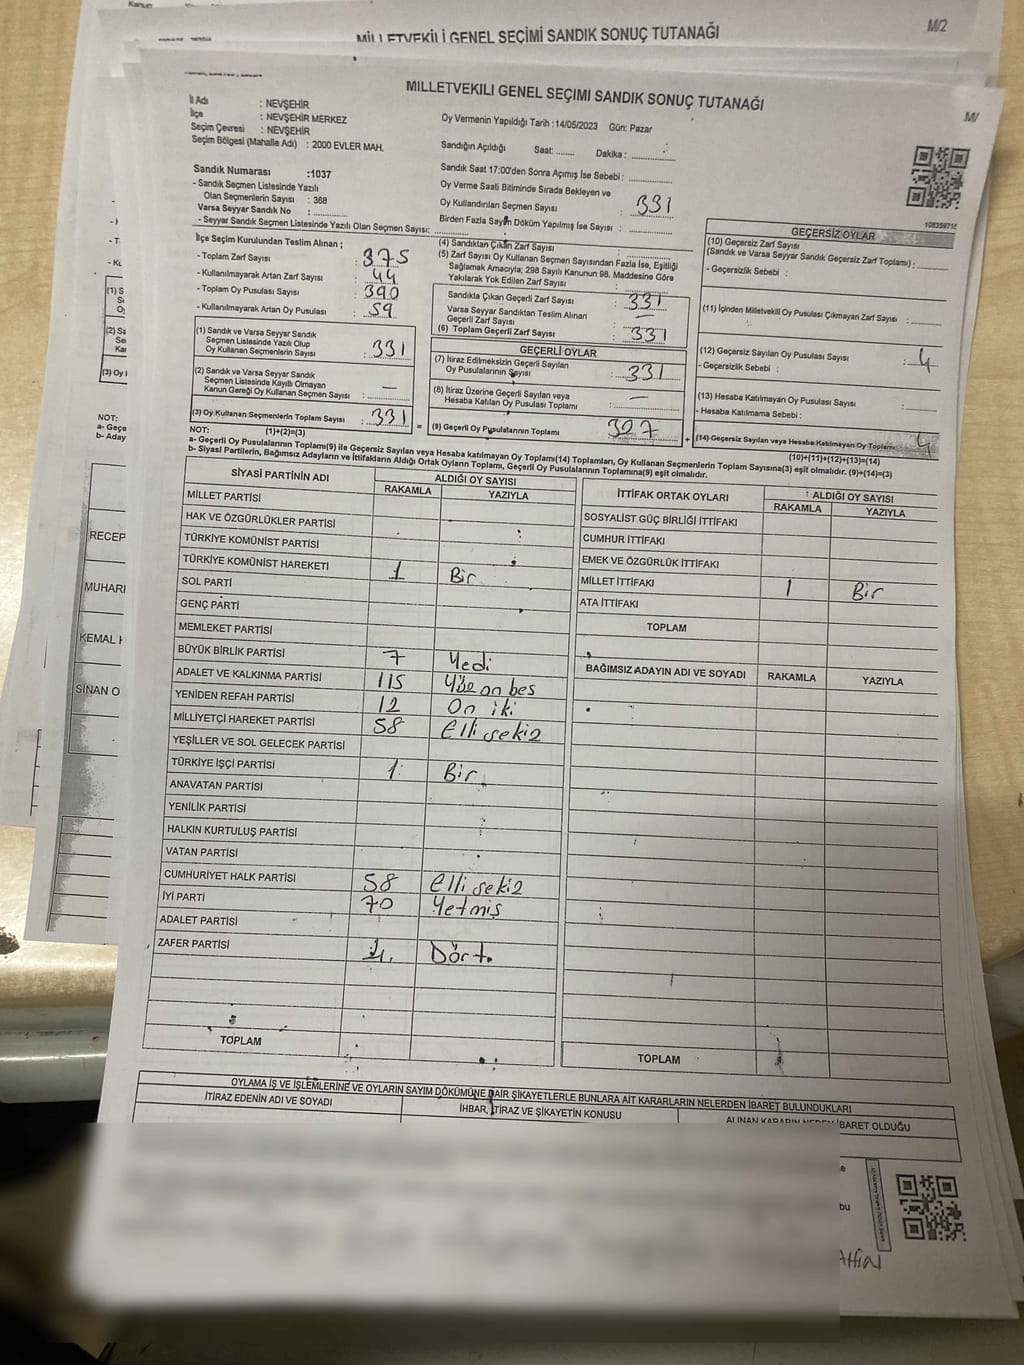 MİLLETVEKİLİ GENEL SEÇİMİ SANDIK SONUÇ TUTANAĞI
M/2
MİLLETVEKİLİ GENEL SEÇİMİ SANDIK SONUÇ TUTANAĞI
M/
İl Adı : NEVŞEHİR
İlçe : NEVŞEHİR MERKEZ
Seçim Çevresi : NEVŞEHİR
Seçim Bölgesi (Mahalle Adı) : 2000 EVLER MAH.
Oy Vermenin Yapıldığı Tarih :14/05/2023 Gün: Pazar
Sandığın Açıldığı Saat: ........ Dakika : ....................
Sandık Numarası :1037
- Sandık Seçmen Listesinde Yazılı
Olan Seçmenlerin Sayısı : 368
Varsa Seyyar Sandık No : ..............
- Seyyar Sandık Seçmen Listesinde Yazılı Olan Seçmen Sayısı: ..............
Sandık Saat 17:00'den Sonra Açımış İse Sebebi : ..............
Oy Verme Saati Bitiminde Sırada Bekleyen ve
Oy Kullandırılan Seçmen Sayısı : 331
Birden Fazla Sayım Döküm Yapılmış İse Sayısı : ..............
108359715
İlçe Seçim Kurulundan Teslim Alınan ;
- Toplam Zarf Sayısı : 375
- Kullanılmayarak Artan Zarf Sayısı : 44
- Toplam Oy Pusulası Sayısı : 390
- Kullanılmayarak Artan Oy Pusulası : 59
(1) Sandık ve Varsa Seyyar Sandık
Seçmen Listesinde Yazılı Olup
Oy Kullanan Seçmenlerin Sayısı : 331
(2) Sandık ve Varsa Seyyar Sandık
Seçmen Listesinde Kayıtlı Olmayan
Kanun Gereği Oy Kullanan Seçmen Sayısı : —
(3) Oy Kullanan Seçmenlerin Toplam Sayısı : 331
(4) Sandıktan Çıkan Zarf Sayısı :
(5) Zarf Sayısı Oy Kullanan Seçmen Sayısından Fazla İse, Eşitliği
Sağlamak Amacıyla; 298 Sayılı Kanunun 98. Maddesine Göre
Yakılarak Yok Edilen Zarf Sayısı :
Sandıkta Çıkan Geçerli Zarf Sayısı : 331
Varsa Seyyar Sandıktan Teslim Alınan
Geçerli Zarf Sayısı : —
(6) Toplam Geçerli Zarf Sayısı : 331
GEÇERLİ OYLAR
(7) İtiraz Edilmeksizin Geçerli Sayılan
Oy Pusulalarının Sayısı : 331
(8) İtiraz Üzerine Geçerli Sayılan veya
Hesaba Katılan Oy Pusulası Toplamı : —
= (9) Geçerli Oy Pusulalarının Toplamı 327 +
GEÇERSİZ OYLAR
(10) Geçersiz Zarf Sayısı
(Sandık ve Varsa Seyyar Sandık Geçersiz Zarf Toplamı) : ........
- Geçersizlik Sebebi :
(11) İçinden Milletvekili Oy Pusulası Çıkmayan Zarf Sayısı : ........
(12) Geçersiz Sayılan Oy Pusulası Sayısı : 4
- Geçersizlik Sebebi :
(13) Hesaba Katılmayan Oy Pusulası Sayısı : ........
- Hesaba Katılmama Sebebi :
(14) Geçersiz Sayılan veya Hesaba Katılmayan Oy Toplamı 4
(10)+(11)+(12)+(13)=(14)
NOT: (1)+(2)=(3)
a- Geçerli Oy Pusulalarının Toplamı(9) ile Geçersiz Sayılan veya Hesaba Katılmayan Oy Toplamı(14) Toplamları, Oy Kullanan Seçmenlerin Toplam Sayısına(3) eşit olmalıdır. (9)+(14)=(3)
b- Siyasi Partilerin, Bağımsız Adayların ve İttifakların Aldığı Ortak Oyların Toplamı, Geçerli Oy Pusulalarının Toplamına(9) eşit olmalıdır.
SİYASİ PARTİNİN ADI ALDIĞI OY SAYISI
RAKAMLA YAZIYLA
MİLLET PARTİSİ
HAK VE ÖZGÜRLÜKLER PARTİSİ
TÜRKİYE KOMÜNİST PARTİSİ
TÜRKİYE KOMÜNİST HAREKETİ 1 Bir
SOL PARTİ
GENÇ PARTİ
MEMLEKET PARTİSİ
BÜYÜK BİRLİK PARTİSİ 7 Yedi
ADALET VE KALKINMA PARTİSİ 115 Yüz on beş
YENİDEN REFAH PARTİSİ 12 On iki
MİLLİYETÇİ HAREKET PARTİSİ 58 Elli sekiz
YEŞİLLER VE SOL GELECEK PARTİSİ
TÜRKİYE İŞÇİ PARTİSİ 1 Bir
ANAVATAN PARTİSİ
YENİLİK PARTİSİ
HALKIN KURTULUŞ PARTİSİ
VATAN PARTİSİ
CUMHURİYET HALK PARTİSİ 58 Elli sekiz
İYİ PARTİ 70 Yetmiş
ADALET PARTİSİ
ZAFER PARTİSİ 4 Dört
TOPLAM
İTTİFAK ORTAK OYLARI ALDIĞI OY SAYISI
RAKAMLA YAZIYLA
SOSYALİST GÜÇ BİRLİĞİ İTTİFAKI
CUMHUR İTTİFAKI
EMEK VE ÖZGÜRLÜK İTTİFAKI
MİLLET İTTİFAKI 1 Bir
ATA İTTİFAKI
TOPLAM
BAĞIMSIZ ADAYIN ADI VE SOYADI RAKAMLA YAZIYLA
TOPLAM
OYLAMA İŞ VE İŞLEMLERİNE VE OYLARIN SAYIM DÖKÜMÜNE DAİR ŞİKAYETLERLE BUNLARA AİT KARARLARIN NELERDEN İBARET BULUNDUKLARI
İTİRAZ EDENİN ADI VE SOYADI İHBAR, İTİRAZ VE ŞİKAYETİN KONUSU ALINAN KARARIN NEDEN İBARET OLDUĞU
NOT:
a- Geçe
b- Aday
RECEP
MUHARI
KEMAL
SİNAN O
bu